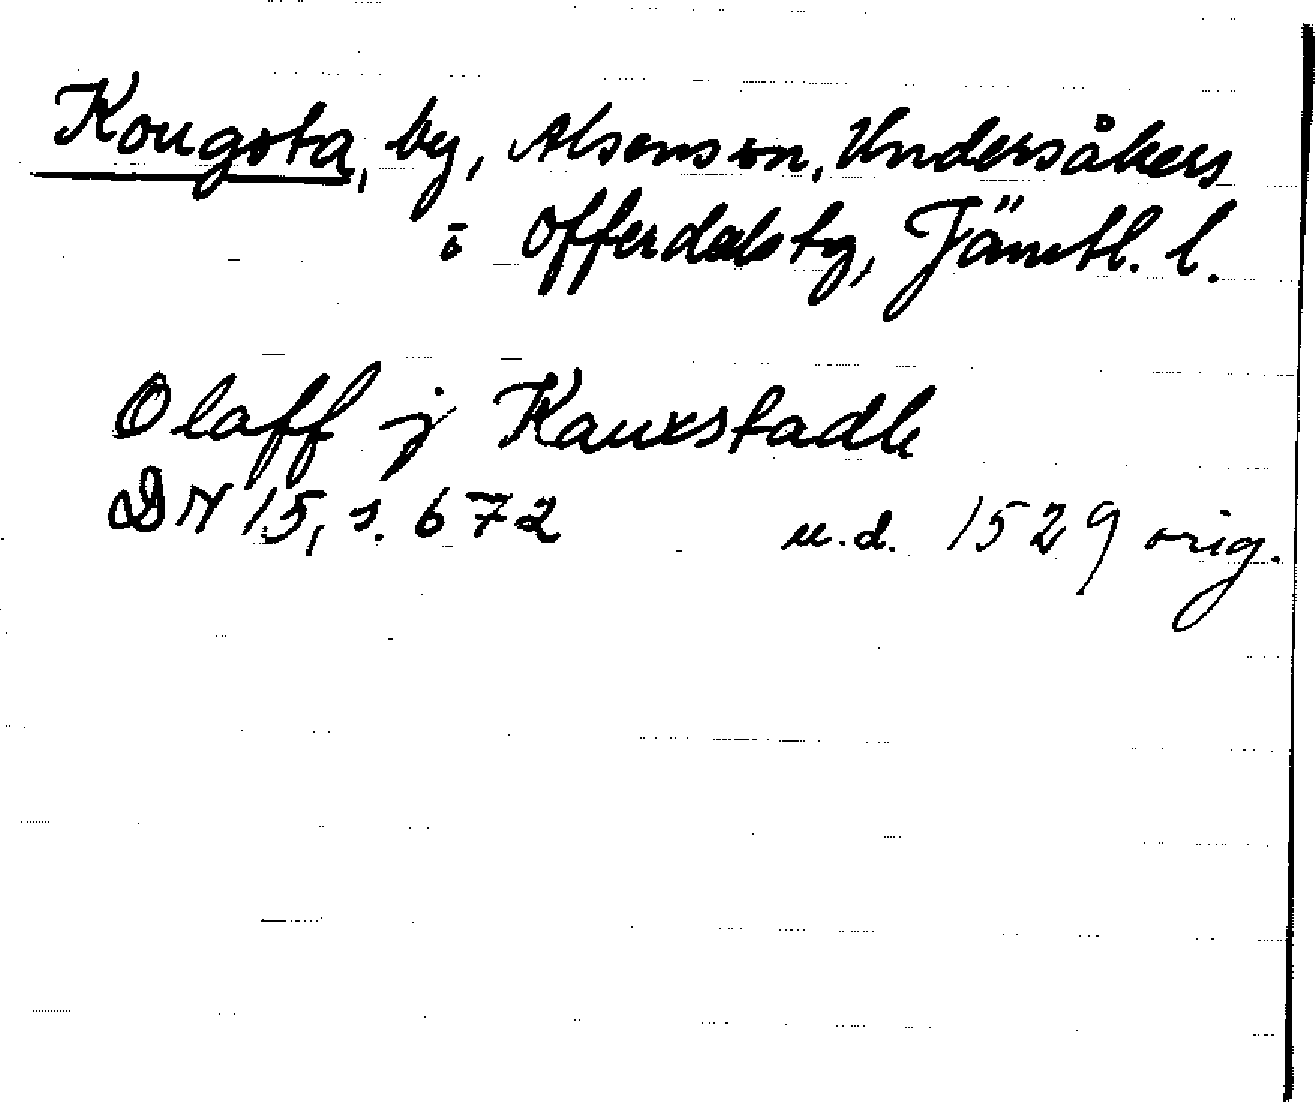 Kougsta, by, Alsens sn, Undersåkers
o Offerdals tg, Jämtl. l.
Olaff j Kauxstadh
DN 15, s. 672 u.d. 1529 orig.